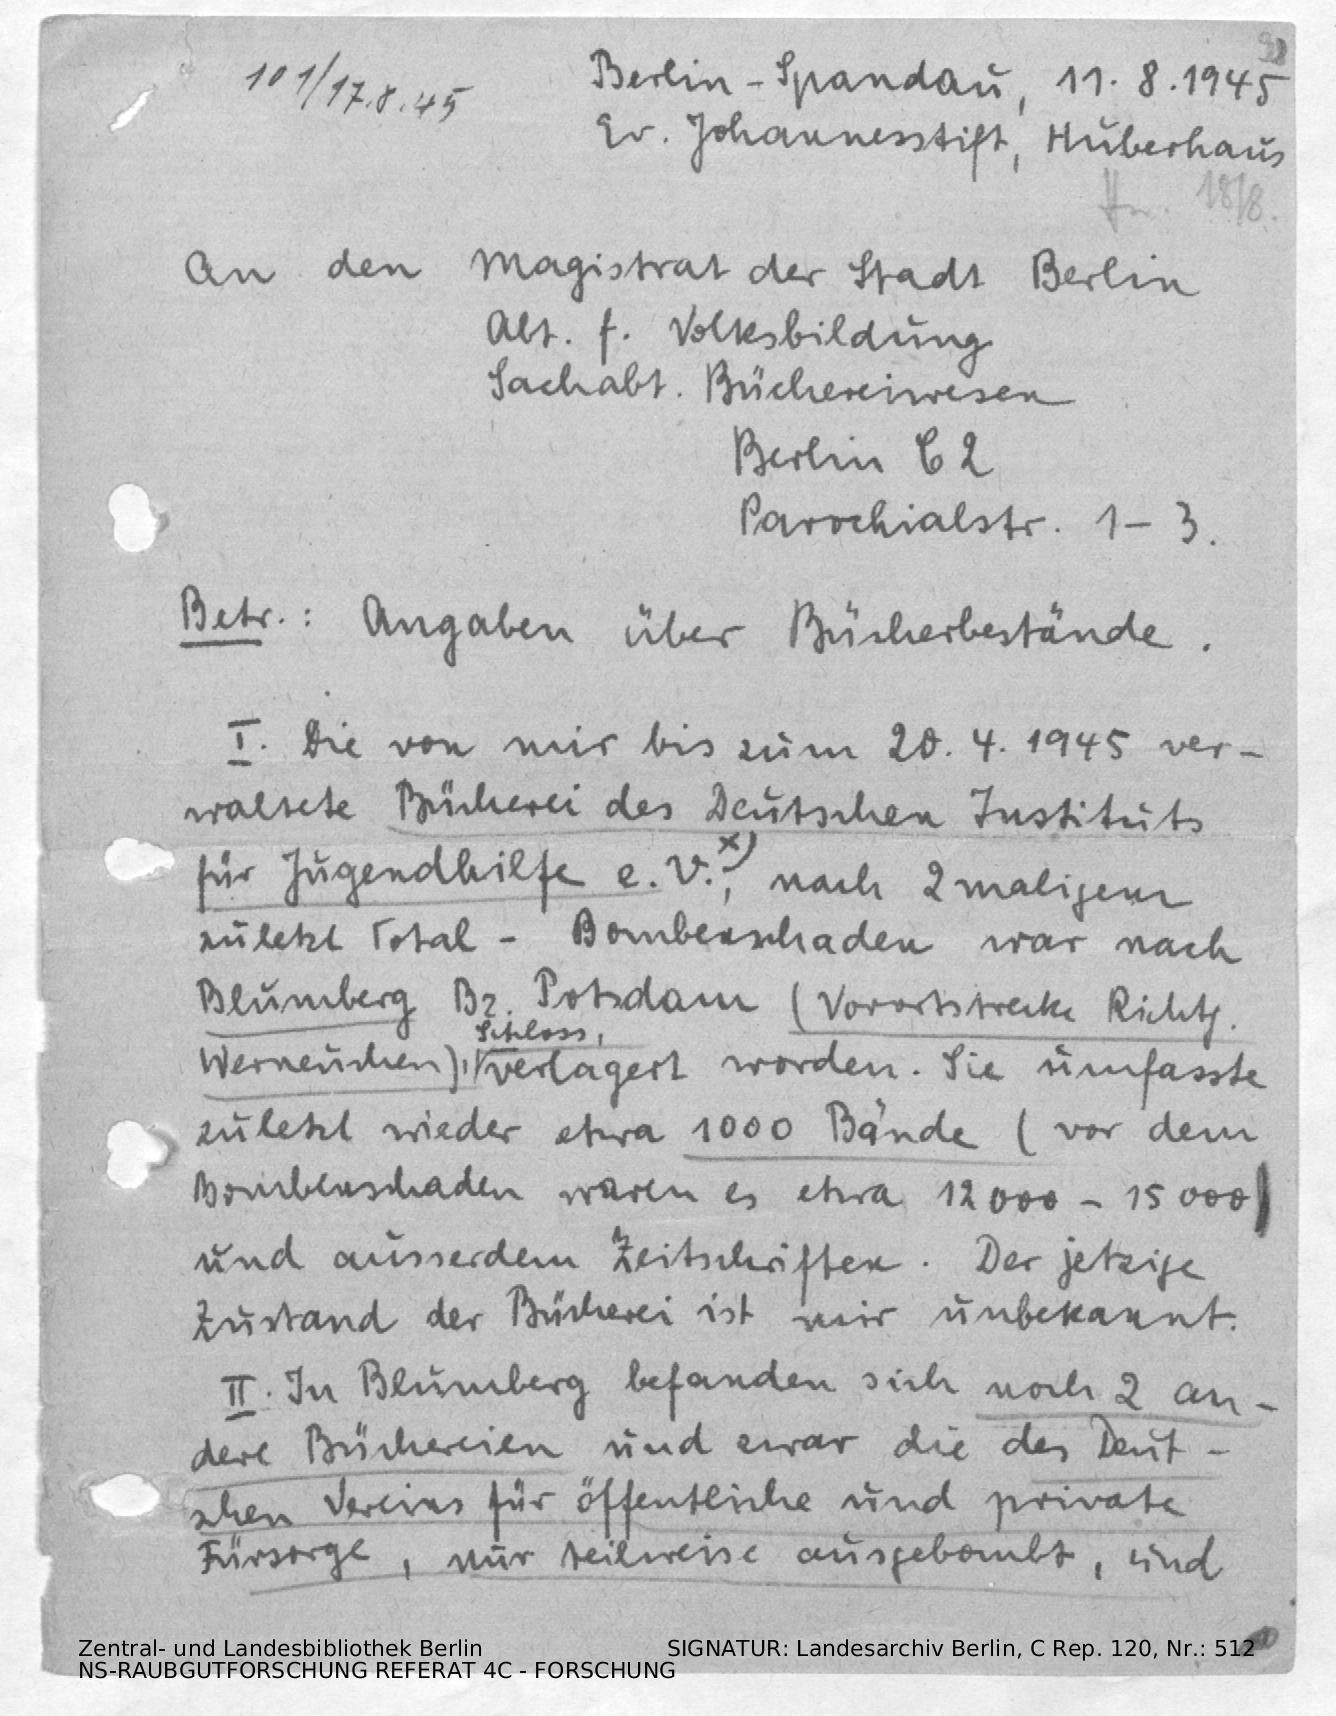 101/17.8.45
Berlin-Spandau, 11.8.1945
Ev. Johannesstift, Huberhaus
18/8.
An den Magistrat der Stadt Berlin
Abt. f. Volksbildung
Sachabt. Büchereiwesen
Berlin C2
Parochialstr. 1-3.
Betr.: Angaben über Bücherbestände.
I. Die von mir bis zum 20.4.1945 ver-
waltete Bücherei des Deutschen Instituts
für Jugendhilfe e.V.x), nach 2maligem
zuletzt Total-Bombenschaden war nach
Blumberg Bz. Potsdam (Vorortstrecke Richtg.
Schloss,
Werneuchen), verlagert worden. Sie umfasste
zuletzt wieder etwa 1000 Bände (vor dem
Bombenschaden waren es etwa 12000 - 15000)
und ausserdem Zeitschriften. Der jetzige
Zustand der Bücherei ist mir unbekannt.
II. In Blumberg befanden sich noch 2 an-
dere Büchereien und zwar die des Deut-
schen Vereins für öffentliche und private
Fürsorge, nur teilweise ausgebombt, und
Zentral- und Landesbibliothek Berlin
NS-RAUBGUTFORSCHUNG REFERAT 4C - FORSCHUNG
SIGNATUR: Landesarchiv Berlin, C Rep. 120, Nr.: 512